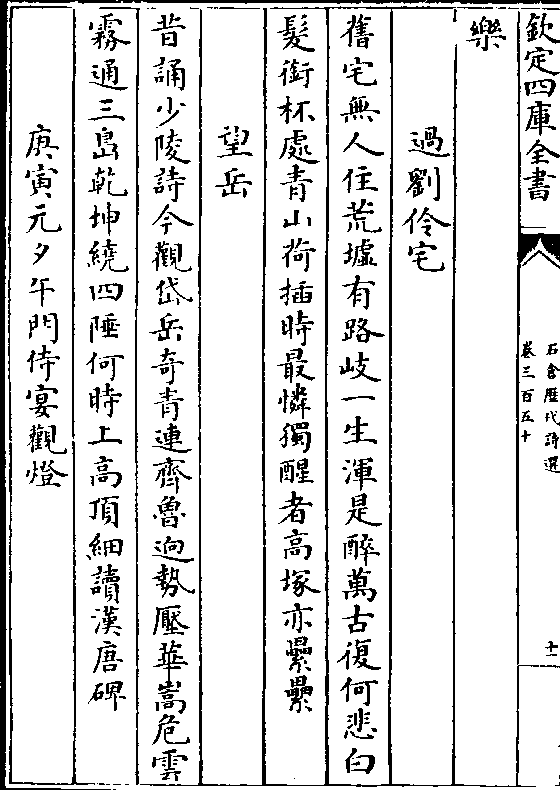 欽定四庫全書
石倉歷代詩選
卷三百五十
十一
樂
過劉伶宅
舊宅無人住荒墟有路岐一生渾是醉萬古復何悲白
髮銜杯處青山荷插時最憐獨醒者高塚亦纍纍
望岳
昔誦少陵詩今觀岱岳奇青連齊魯逈勢壓華嵩危雲
霧通三島乾坤繞四陲何時上高頂細讀漢唐碑
庚寅元夕午門侍宴觀燈